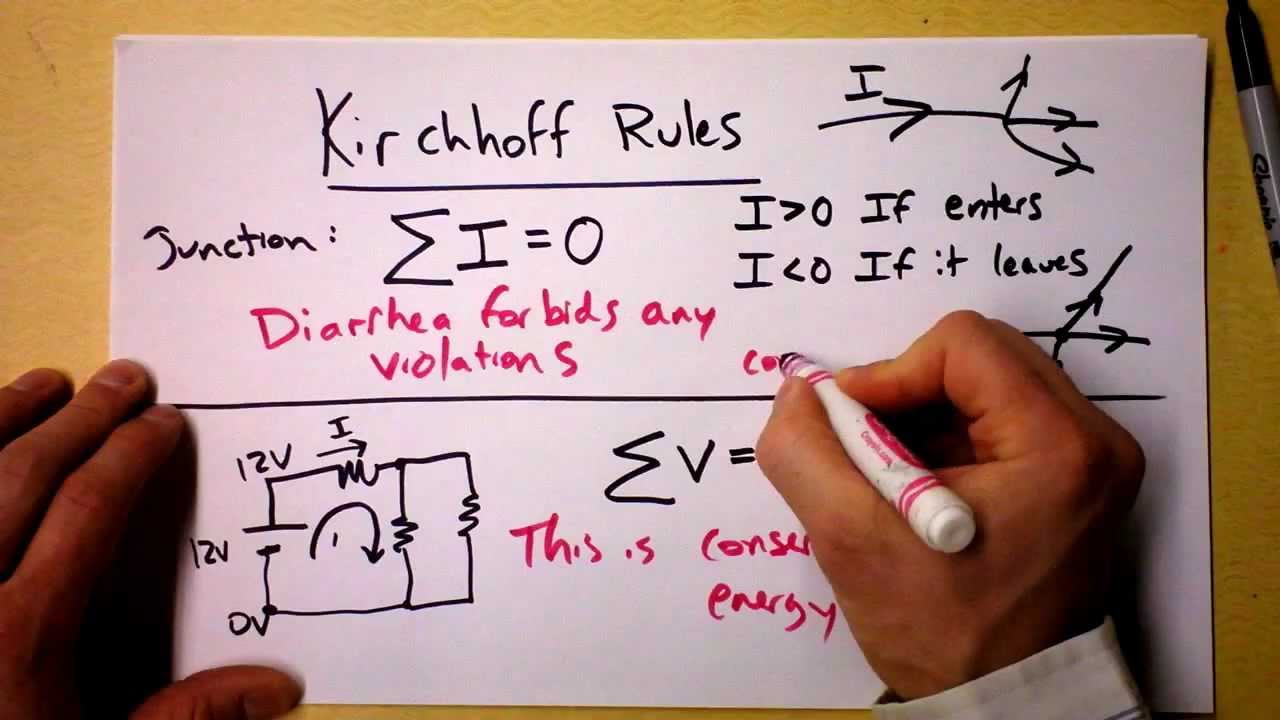 Kirchhoff Rules
I
Junction: ΣI=0
I>0 If enters
I<0 If it leaves
Diarrhea forbids any
violations
co
I
12V
12V
0V
1
ΣV=
This is conser
energy
Crayola.com
Sharpie